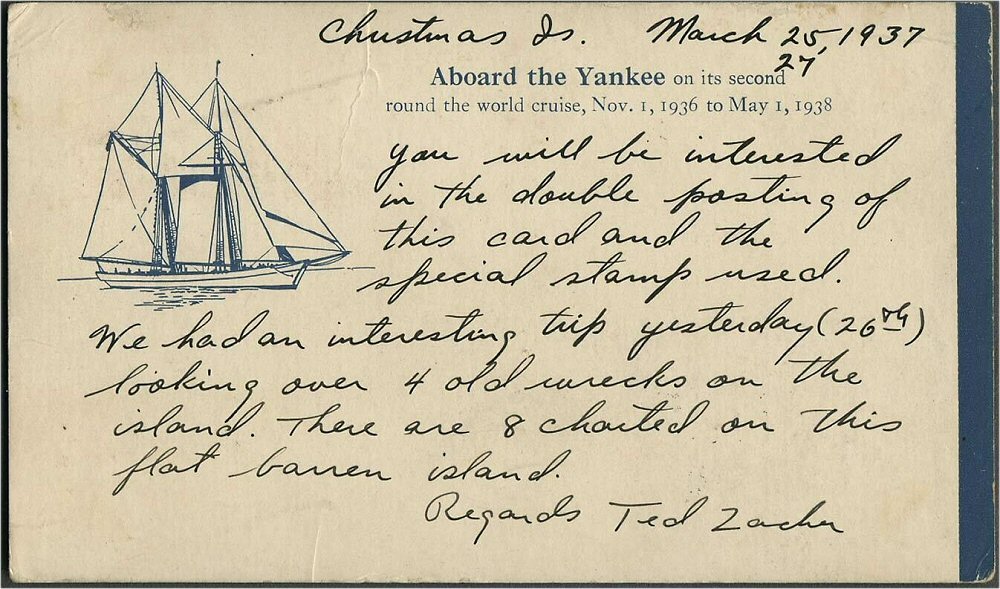 Christmas Is. March 25, 1937
27
Aboard the Yankee on its second
round the world cruise, Nov. 1, 1936 to May 1, 1938
You will be interested
in the double posting of
this card and the
special stamp used.
We had an interesting trip yesterday (26th)
looking over 4 old wrecks on the
island. There are 8 charted on this
flat barren island.
Regards Ted Zacher